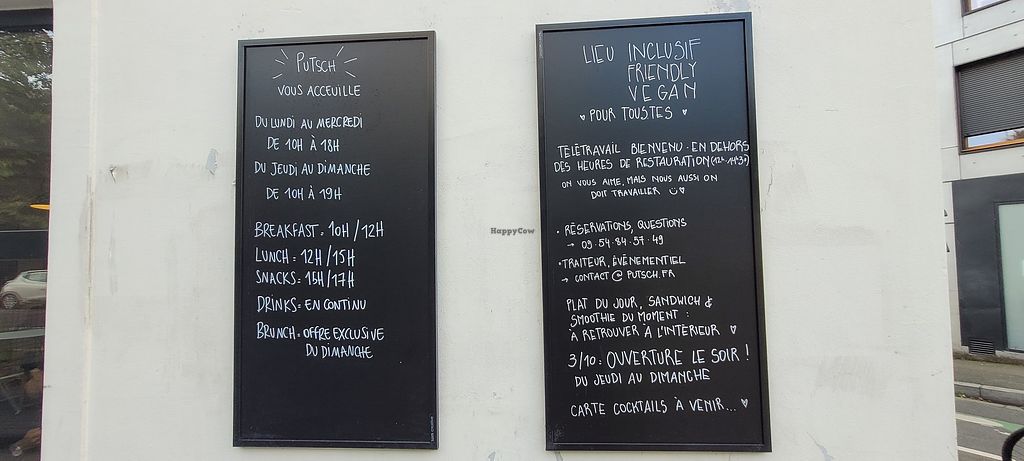 PUTSCH
VOUS ACCEUILLE
DU LUNDI AU MERCREDI
DE 10H À 18H
DU JEUDI AU DIMANCHE
DE 10H À 19H
BREAKFAST . 10H / 12H
LUNCH = 12H / 15H
SNACKS = 15H / 17H
DRINKS = EN CONTINU
BRUNCH = OFFRE EXCLUSIVE
DU DIMANCHE
LIEU INCLUSIF
FRIENDLY
VEGAN
♥ POUR TOUSTES ♥
TÉLÉTRAVAIL BIENVENU · EN DEHORS
DES HEURES DE RESTAURATION (12H-14H30)
ON VOUS AIME, MAIS NOUS AUSSI ON
DOIT TRAVAILLER ☺♥
· RÉSERVATIONS, QUESTIONS
→ 09·54·84·57·49
· TRAITEUR, ÉVÈNEMENTIEL
→ CONTACT@PUTSCH.FR
PLAT DU JOUR, SANDWICH &
SMOOTHIE DU MOMENT :
À RETROUVER À L'INTÉRIEUR ♥
3/10 : OUVERTURE LE SOIR !
DU JEUDI AU DIMANCHE
CARTE COCKTAILS À VENIR... ♥
HappyCow